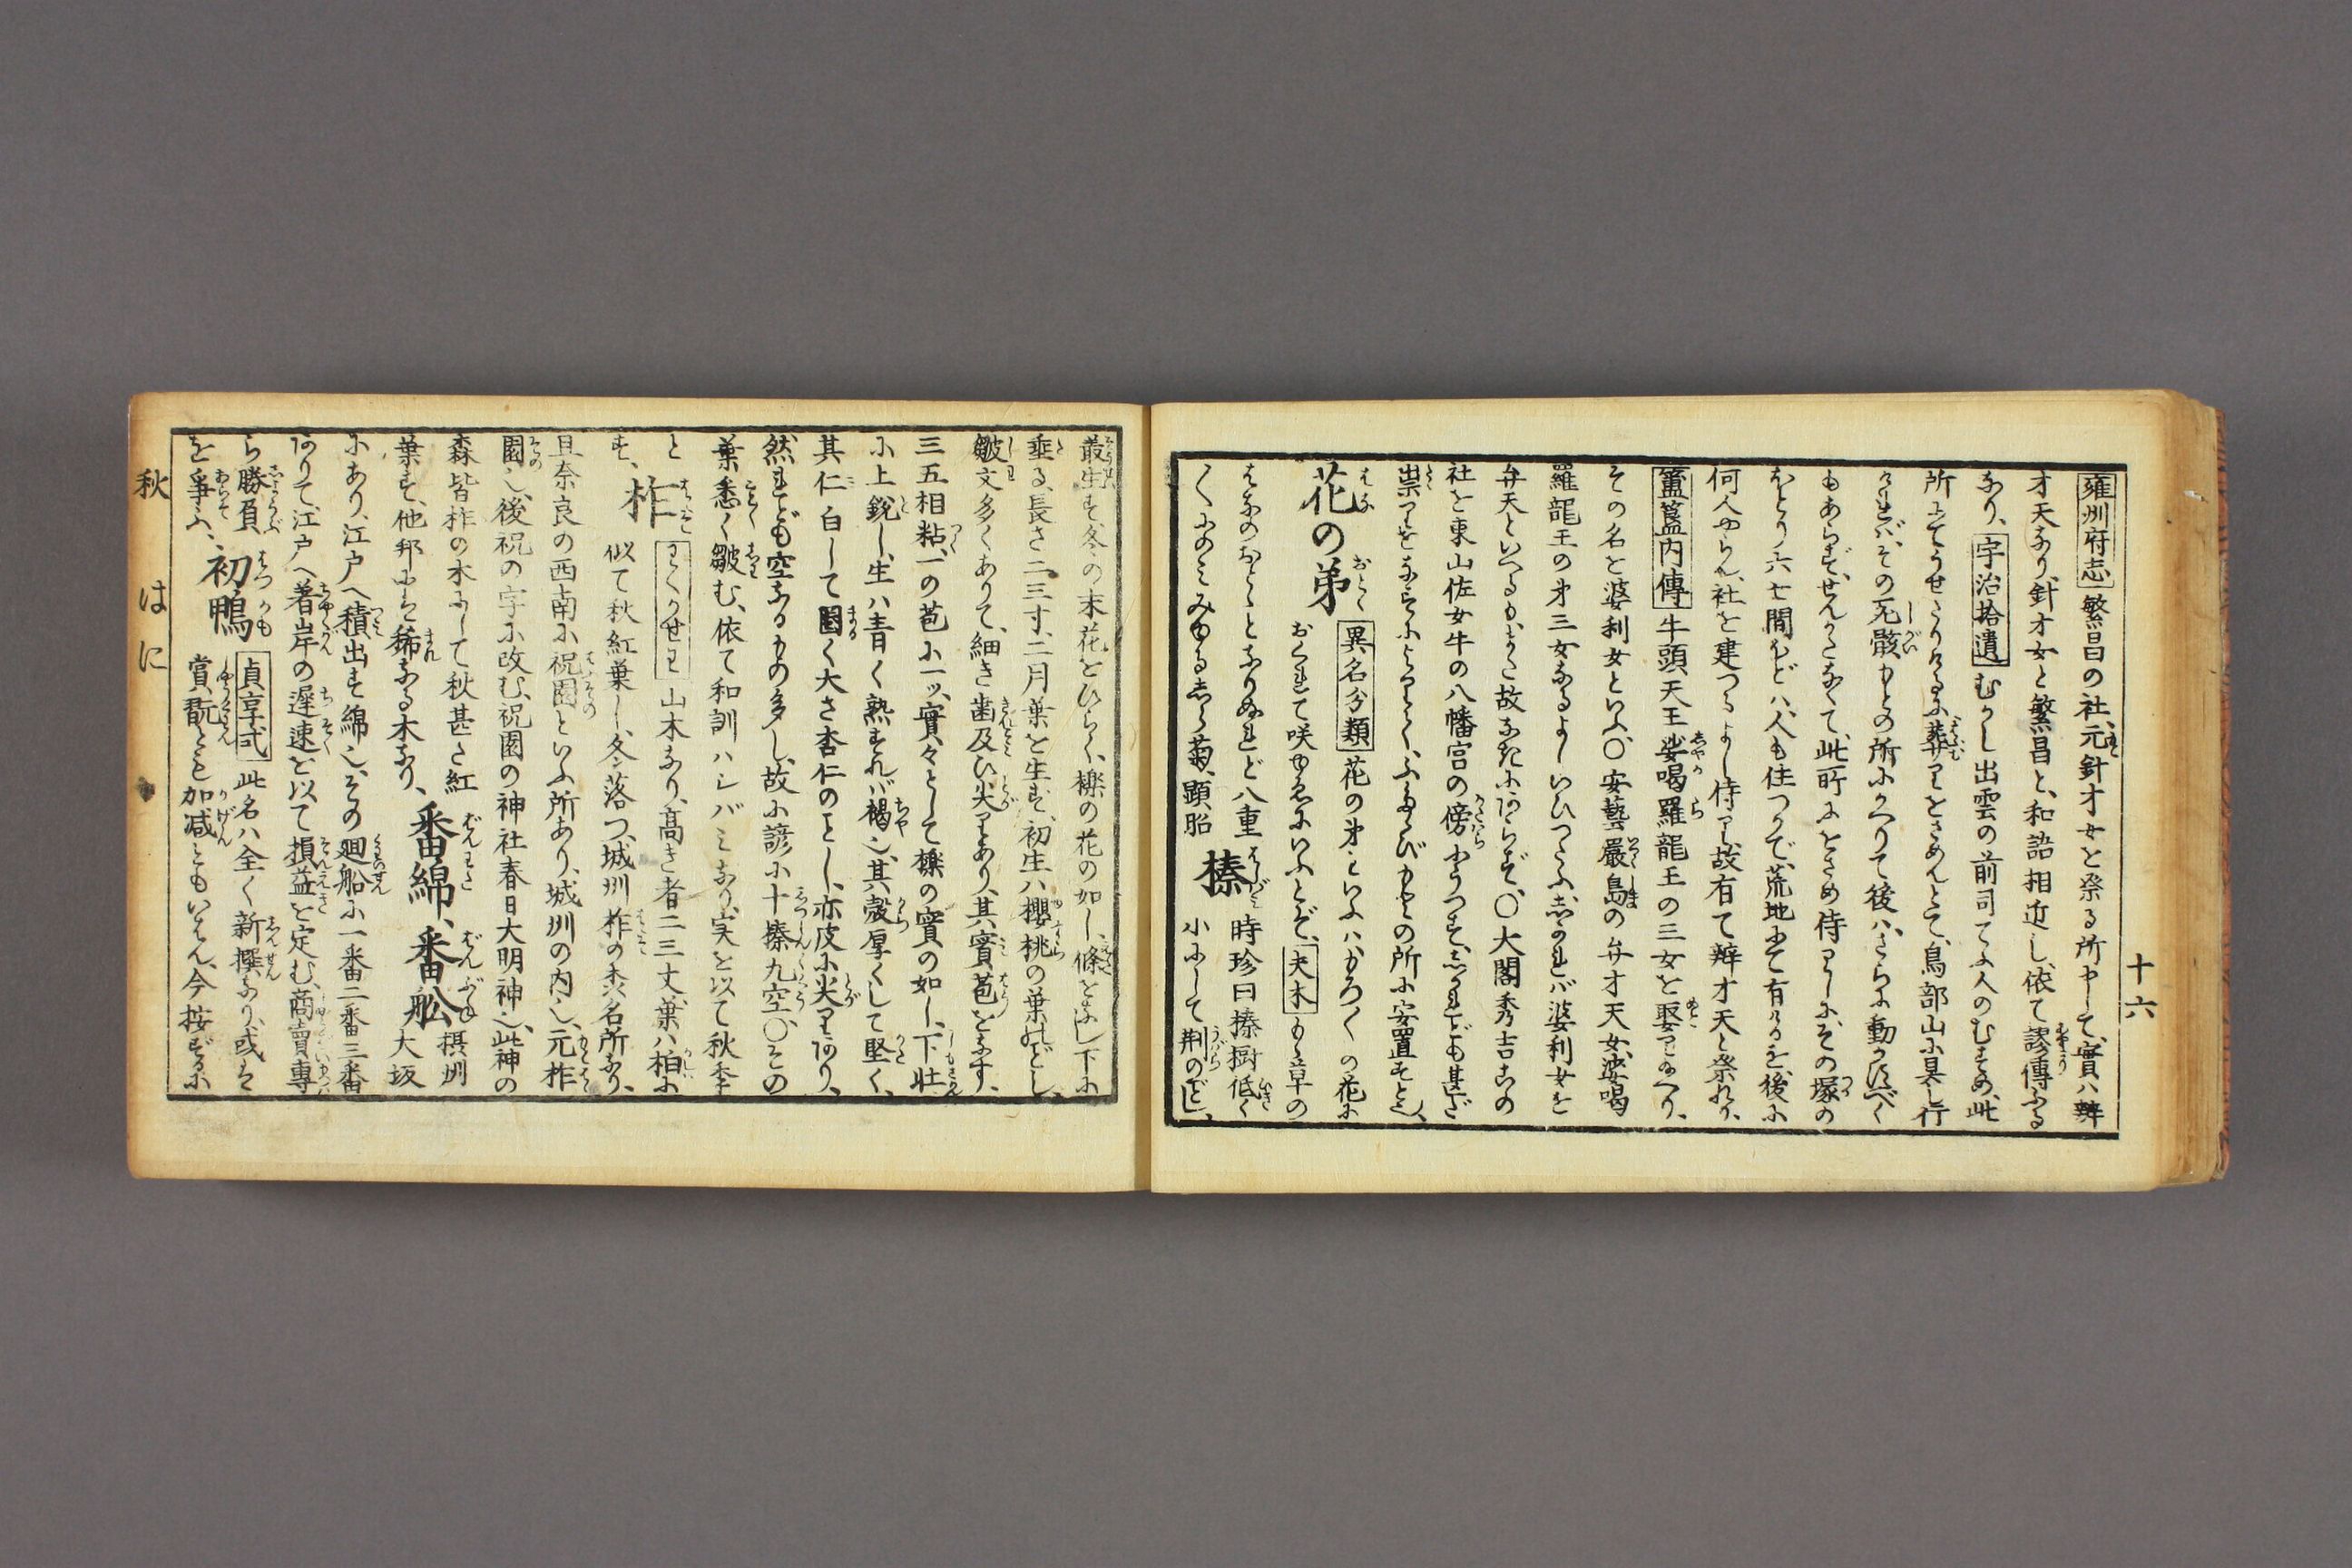 十六
雍州府志 繁昌の社、元針才女を祭る所也して、實ハ辨
才天なり針才女と繁昌と、和語相近し、依て謬傳ふる
なり、宇治拾遺 むかし出雲の前司てふ人のむすめ、此
所にてうせたりけるに葬りをさめんとて、鳥部山に具し行
けれバ、その死骸もとの所にかへりて後ハ、さらに動かずべく
もあらず、せんかたなくて、此所にをさめ侍りしに、その塚の
ほとり六七間ほどハ、人も住つかで、荒地にて有けるを、後に
何人やらん、社を建つるよし侍る、故有て辨才天と祭れり、
簠簋内傳 牛頭天王娑喝羅龍王の三女と娶り給へり、
その名を婆利女といふ、〇安藝嚴島の弁才天女、娑喝
羅龍王の第三女なるよしいひつたふ、しかれバ婆利女を
弁天といへるも、また故なきにあらず、〇大閤秀吉公の
社を東山佐女牛の八幡宮の傍にうつす、しかれども甚だ
祟りをなすによりて、ふたゝびもとの所に安置すと也、
花の弟 異名分類 花の弟といふハもろ〱の花に
おくれて咲ゆゑにいふとぞ、夫木 もゝ草の
はなのおとゝとなりぬれど八重
〱にのみみゆるしら菊、顕昭
榛 時珍曰榛樹低く
小にして、荆のごとし、
叢生す、冬の末花をひらく、櫟の花の如し、條をなし下に
垂る、長さ二三寸、二月葉を生ず、初生ハ櫻桃の葉のごとし、
皺文多くありて、細き歯及び尖りあり、其實苞をなす、
三五相粘、一の苞に一ッ、實々として櫟の實の如し、下壮
に上鋭し、生ハ青く熟すれバ褐也、其殻厚くして堅く、
其仁白して圓く大さ杏仁のごとし、亦皮に尖りあり、
然れども空なるもの多し、故に諺に十榛九空、〇その
葉悉く皺む、依て和訓ハシバミなり、実を以て秋季
と
す、
柞 わくかせわ 山木なり、高き者二三丈、葉ハ柏に
似て秋紅葉し、冬ン落つ、城州柞の森名所なり、
且奈良の西南に祝園といふ所あり、城州の内也、元柞
園也、後祝の字に改む、祝園の神社春日大明神也、此神の
森皆柞の木にして秋甚だ紅
葉す、他邦には稀なる木なり、
番綿、番舩 摂州
大坂
にあり、江戸へ積出す綿也、その廻船に一番二番三番
ありて、江戸へ著岸の遅速を以て損益を定む、商賣專
ら勝負
を爭ふ、
初鴨 貞享式 此名ハ全く新撰なり、或は
賞翫とも加減ともいはん、今按ずるに
秋 はに